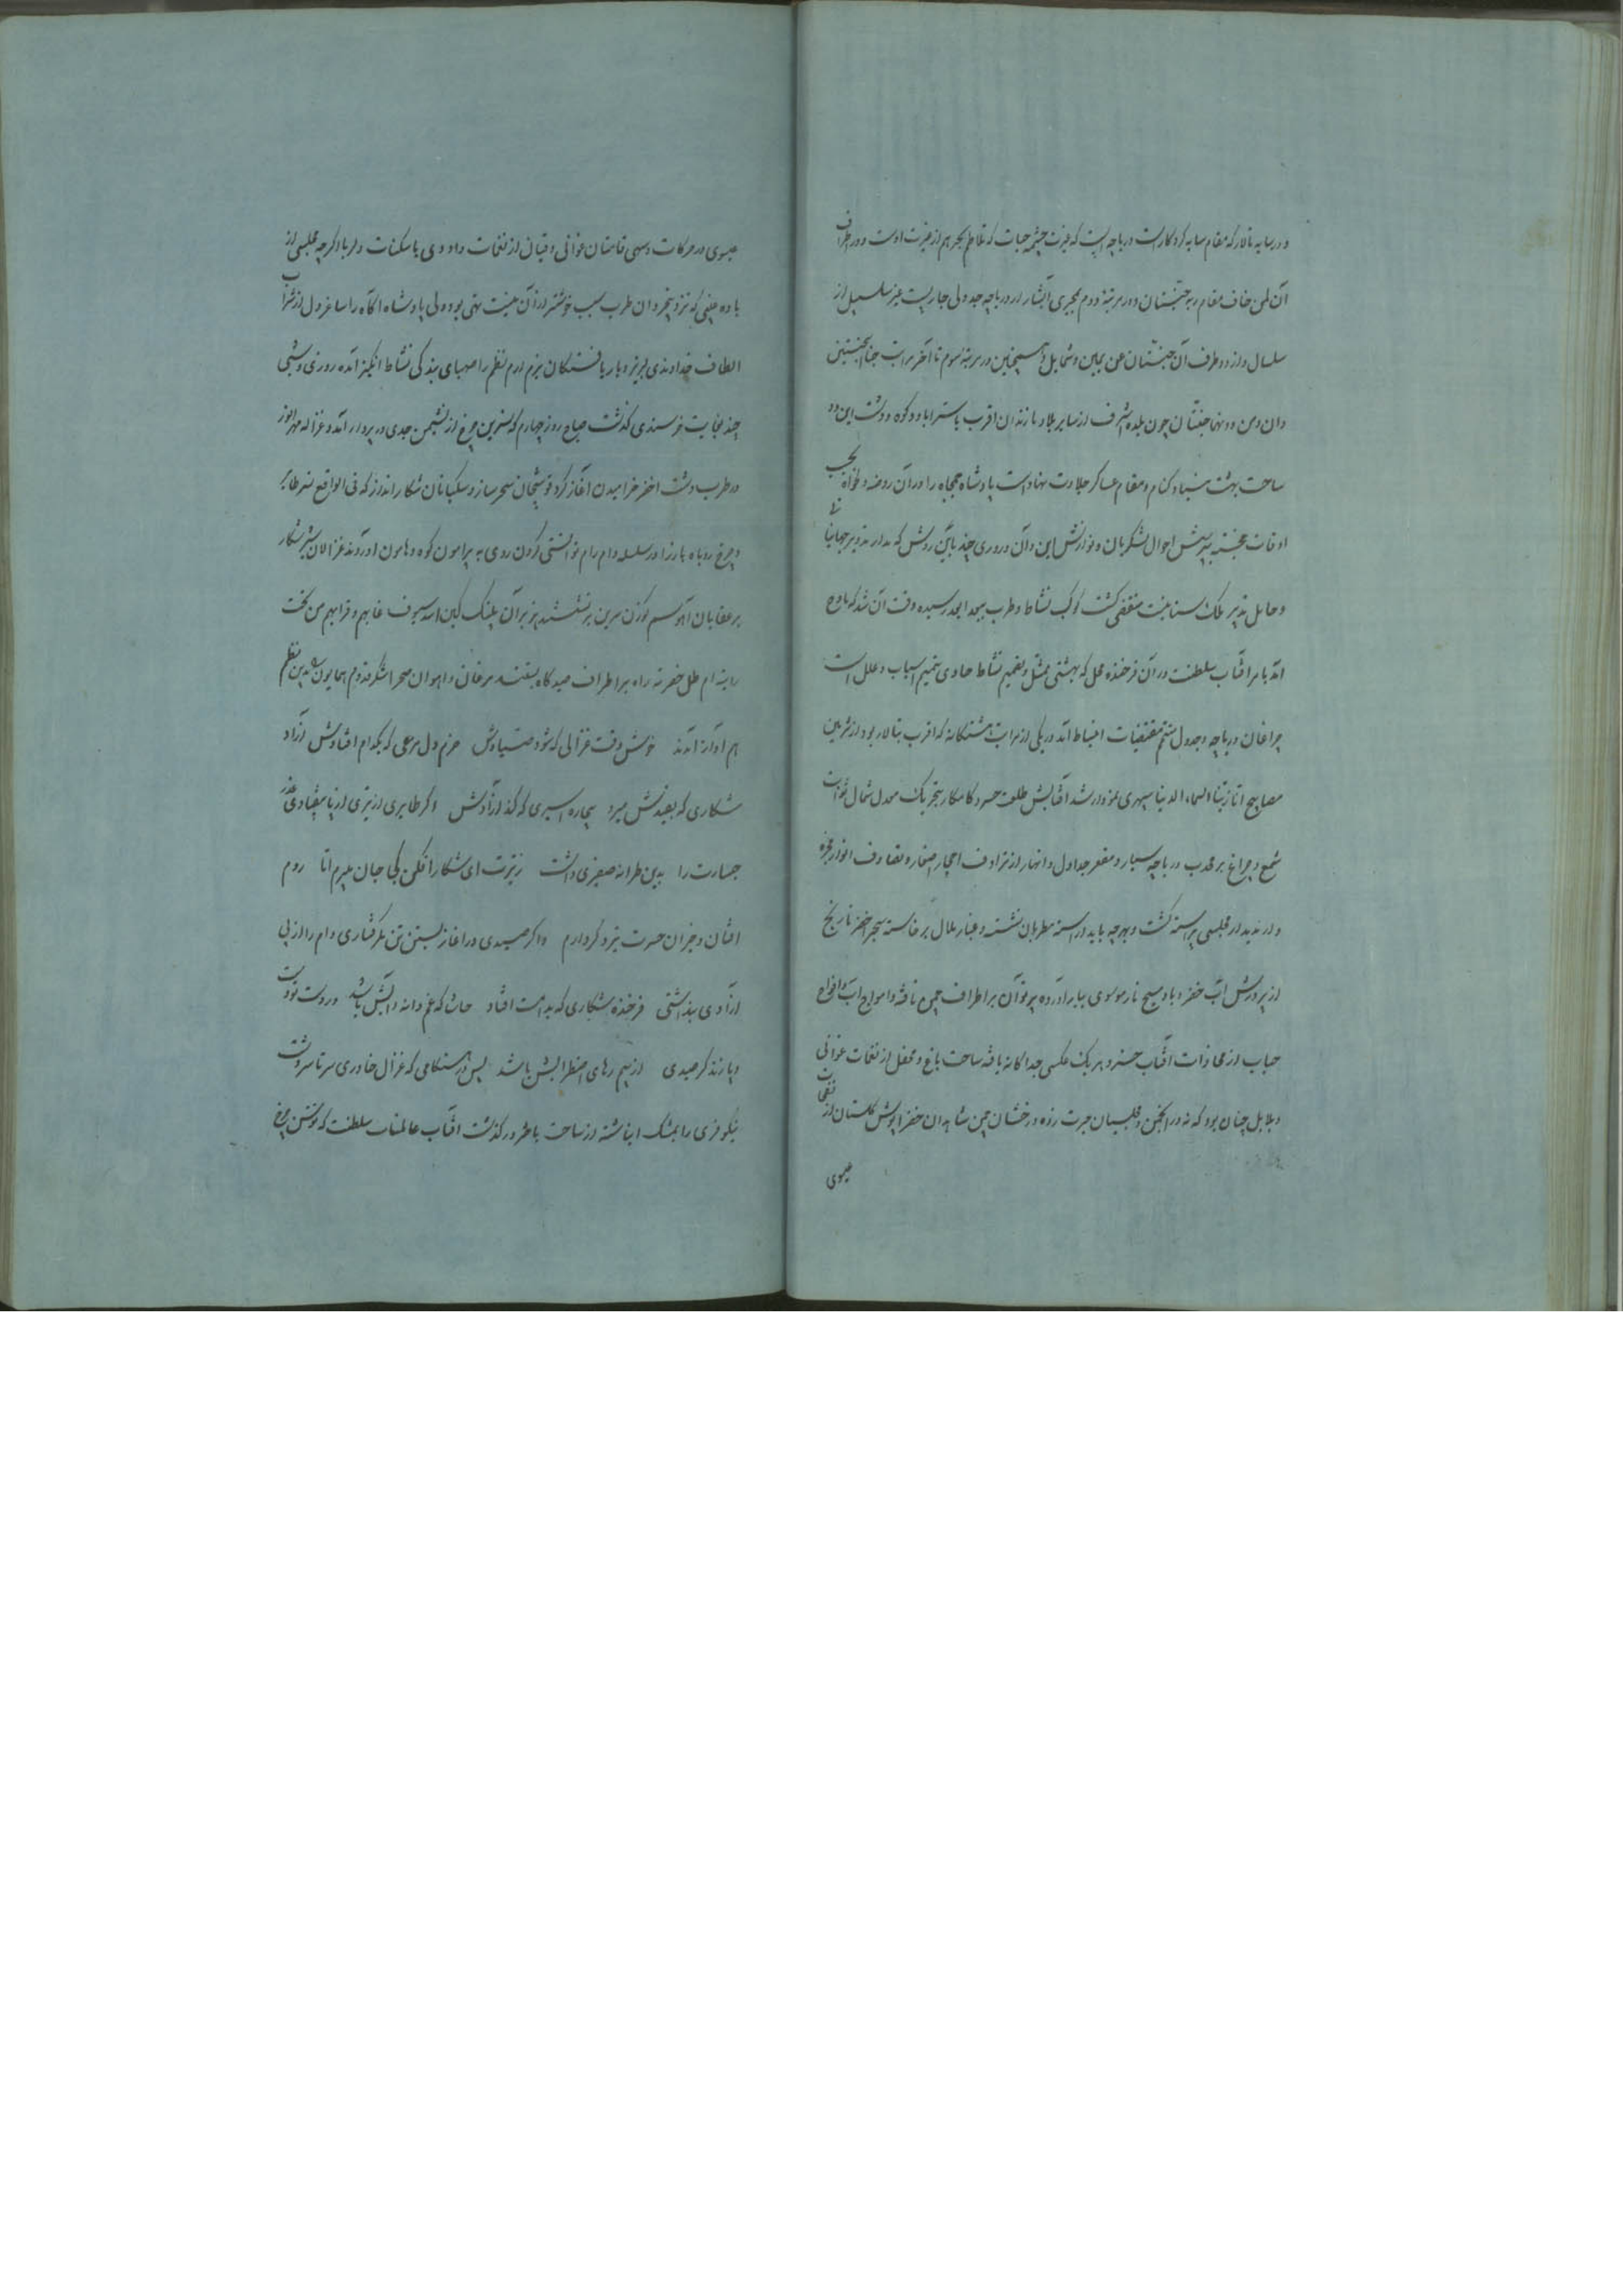 و در سایه تالار که مقام سایه کردگار است دریاچه ایست که غیرت چشمه حیات که تلاطم بحر هم از غیرت اوست و در اطراف
آن لمن خاف مقام ربه جنتان و در مرتبه دوم بمجری آبشار از دریاچه جدولی جاریست غیر سلسبیل از
سلسال و از دو طرف آن جنتان عن یمین و شمایل و همچنین در مرتبه سوم تا آخر مراتب جنا الجنتین
دان و من دونهما جنتان چون بلده اشرف از سایر بلاد مازندران اقرب باسترآباد و کوه و دشت این دو
ساحت بهشت بنیاد کنام و مقام عساکر جلادت نهاد است پادشاه جمجاه را در آن روضه دلخواه بحسب
اوقات خجسته بپرسش احوال لشکریان و نوازش این و آن و روزی چند بآیین روش که مدار تدویر جهانیان
و حامل تدبیر ملک ستانیست منقضی گشت کوکب نشاط و طرب بیحد ابجد رسیده وقت آن شد که باوج
آمد بامر آفتاب سلطنت در آن فرخنده محل که بهشتی ممثل و تعمیم نشاط حاوی تتمیم اسباب و علل است
چراغان دریاچه و جدول متمم مقتضیات انبساط آمد در یکی از مراتب هشتگانه که اقرب بتالار بود از تزیین
مصابیح انا زینا السماء الدنیا سپهری نمودار شد آفتابش طلعت خسرو کامکار بتحریک معدل شمال ثوابت
شمع و چراغ بر محدب دریاچه سیار و مقعر جداول و انهار از ترادف احجار صغار و تصادف انوار مجره
وار پدیدار مجلسی آراسته گشت و بهرچه باید آراسته مطربان نشسته و غبار ملال برخاسته شجر اخضر نارنج
از پرورش آب خضر و باد مسیح نار موسوی ببار آورده پرتو آن بر اطراف چمن تافته و امواج آب و افواج
حباب از محاذات آفتاب خسرو هر یک عکسی جداگانه یافته ساحت باغ و محفل از نغمات غوانی
و بلابل چنان بود که نه در انجمن مجلسیان حیرت زده و درخشان چمن شاهدان خضراپوش گلستان از نفحات
عیسوی
عیسوی در حرکات و سهی قامتان غوانی و قیان از نغمات داودی با سکنات دلربا اگرچه مجلسی از
باده صافی که نزد بیخردان طرب سبب خوشتر از آن نیست تهی بود ولی پادشاه آگاه را ساغر دل از شراب
الطاف خداوندی لبریز و باریافتگان بزم ارم نظم را صهبای بندگی نشاط انگیز آمده روزی و شبی
چند بغایت خرسندی گذشت صباح روز چهارم که نسرین چرخ از نشیمن جدی در پرواز آمد و غزاله مهر انور
در طرب دشت اخضر خرامیدن آغاز کرد قوشچیان سحرساز و سگبانان شکار انداز که فی الواقع نسر طایر
و چرخ روباه باز را در سلسله دام رام توانستی کردن روی به پیرامون کوه و هامون آوردند غزالان شیر شکار
بر عقابان آهو سم گوزن سرین برنشستند هژبر آن پلنگ کین اسد سیوف غابهم و قرابهم من تحت
رایته ام ظل خضرته راه بر اطراف صیدگاه بستند مرغان و آهوان صحرا شکر قدوم همایون بدین نظم
هم آواز آمدند خوش وقت غزالی که شود صیادش خرم دل مرغی که بدام افتادش آزاد
شکاری که بقیدش میرد بیچاره اسیری که کند آزادش اگر طایری از تیری از پا بیفتادی عذر
جسارت را بدین طرانه صفیری داشت ز تیرت ای شکار افکن کجا جان میبرم اما روم
افتان و خیزان حسرت تیر دگر دارم و اگر صیدی در آغاز بستن تن بگرفتاری دام را از پی
آزادی پنداشتی فرخنده شکاری که بدامت افتاد حاشا که غم دانه و آبش باشد در دست تو دست
و پا زند گر صیدی از بیم رهای اضطرابش باشد پس در هنگامی که غزال خاوری سرتاسر دشت
نیلوفری را بمشک انباشته از ساحت باختر درگذشت آفتاب عالمتاب سلطنت که توسن چرخ